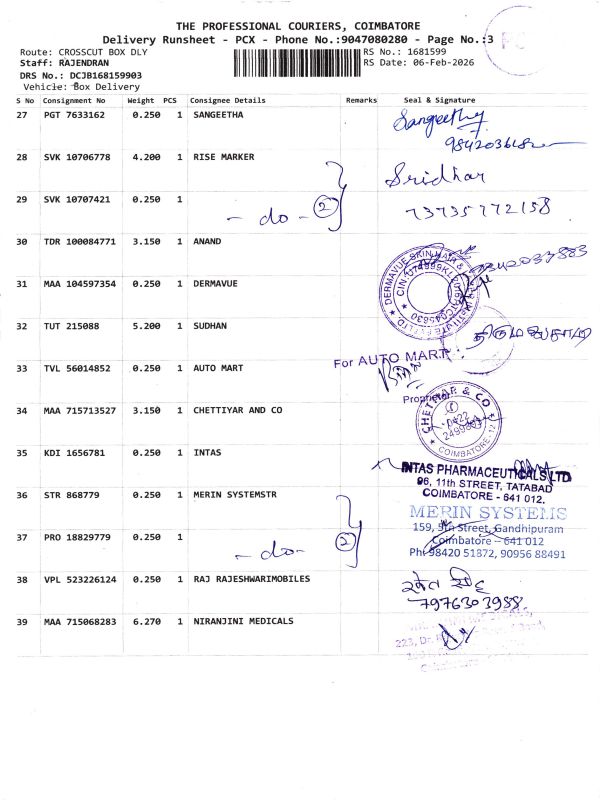 THE PROFESSIONAL COURIERS, COIMBATORE
Delivery Runsheet - PCX - Phone No.:9047080280 - Page No.:3
Route: CROSSCUT BOX DLY RS No.: 1681599
Staff: RAJENDRAN RS Date: 06-Feb-2026
DRS No.: DCJB168159903
Vehicle: Box Delivery
S No Consignment No Weight PCS Consignee Details Remarks Seal & Signature
27 PGT 7633162 0.250 1 SANGEETHA Sangeetha
28 SVK 10706778 4.200 1 RISE MARKER Sridhar
29 SVK 10707421 0.250 1 - do - 2 73735772158
30 TDR 100084771 3.150 1 ANAND
31 MAA 104597354 0.250 1 DERMAVUE DERMAVUE SKIN HAIR &
32 TUT 215088 5.200 1 SUDHAN
33 TVL 56014852 0.250 1 AUTO MART For AUTO MART
Proprietor
34 MAA 715713527 3.150 1 CHETTIYAR AND CO CHETTIYAR & CO
COIMBATORE-12
35 KDI 1656781 0.250 1 INTAS INTAS PHARMACEUTICALS LTD
96, 11th STREET, TATABAD
COIMBATORE - 641 012.
36 STR 868779 0.250 1 MERIN SYSTEMSTR MERIN SYSTEMS
159, 5th Street, Gandhipuram
Coimbatore - 641 012
37 PRO 18829779 0.250 1 - do - 2 Ph: 98420 51872, 90956 88491
38 VPL 523226124 0.250 1 RAJ RAJESHWARIMOBILES
7976303988
39 MAA 715068283 6.270 1 NIRANJINI MEDICALS